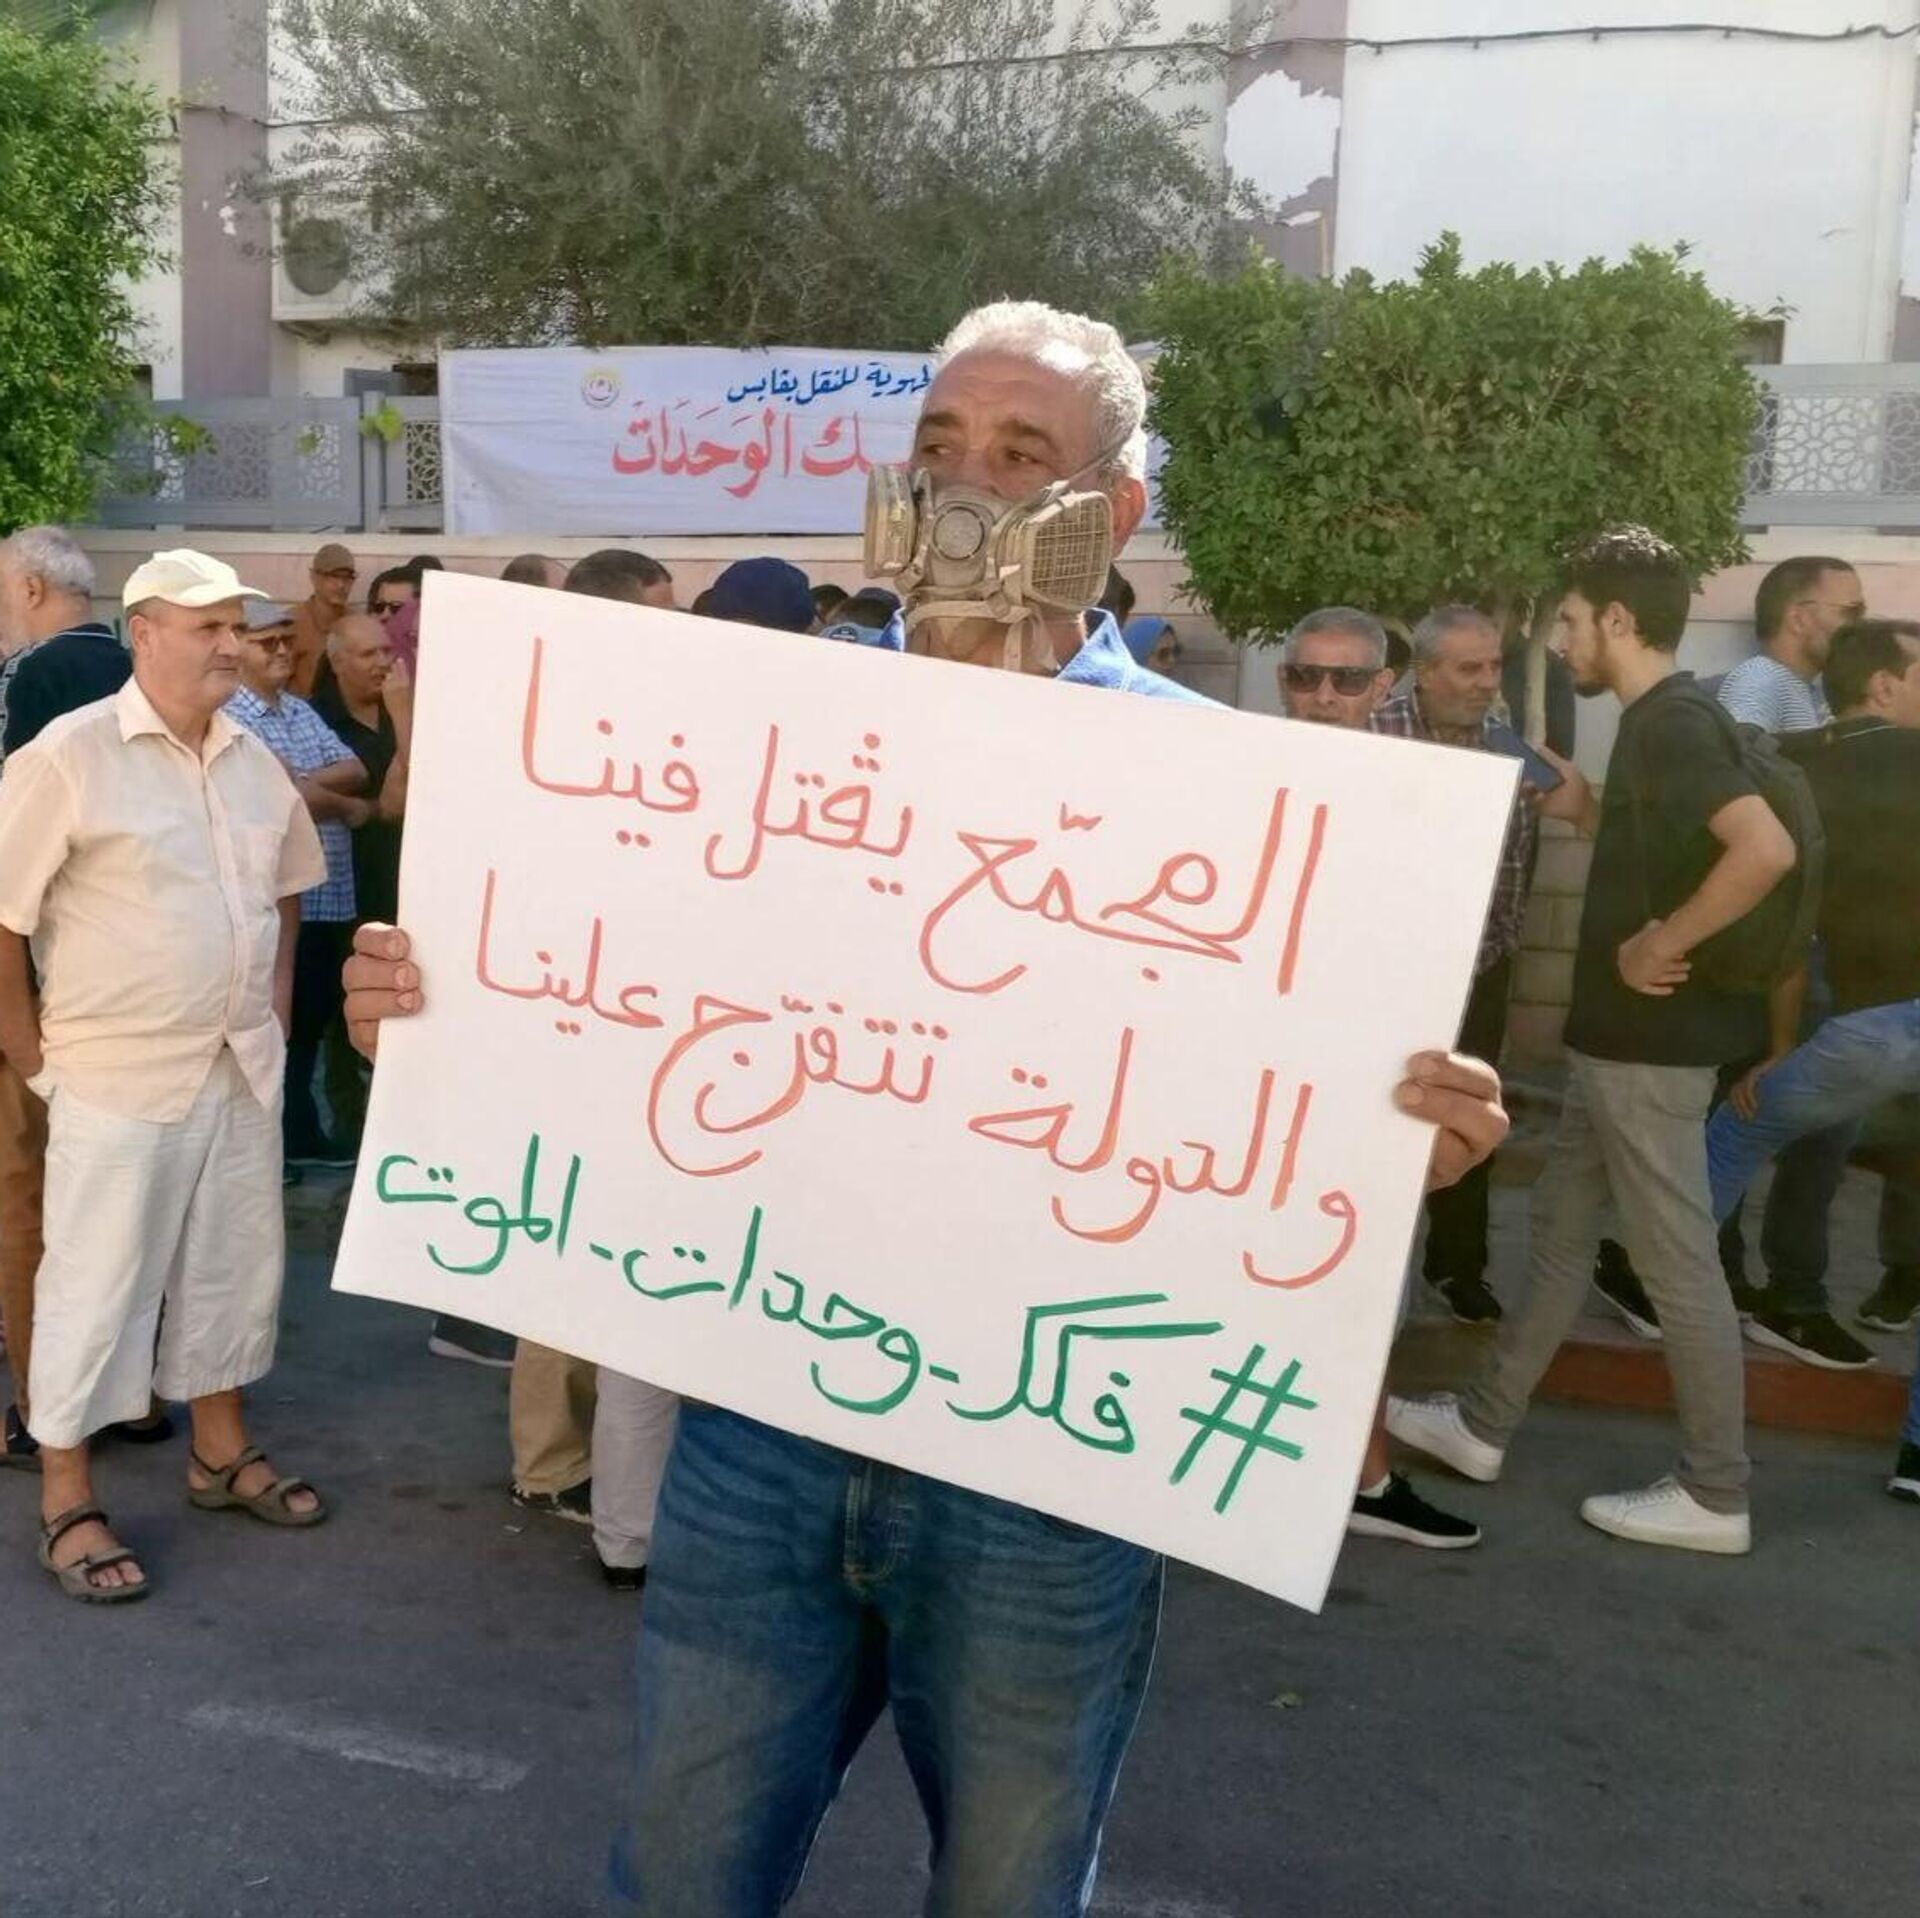 للنقل بقابس
الوَحَدَاتْ
المجمّع يڨتل فينا
والدولة تتفرّج علينا
#فكك_وحدات_الموت